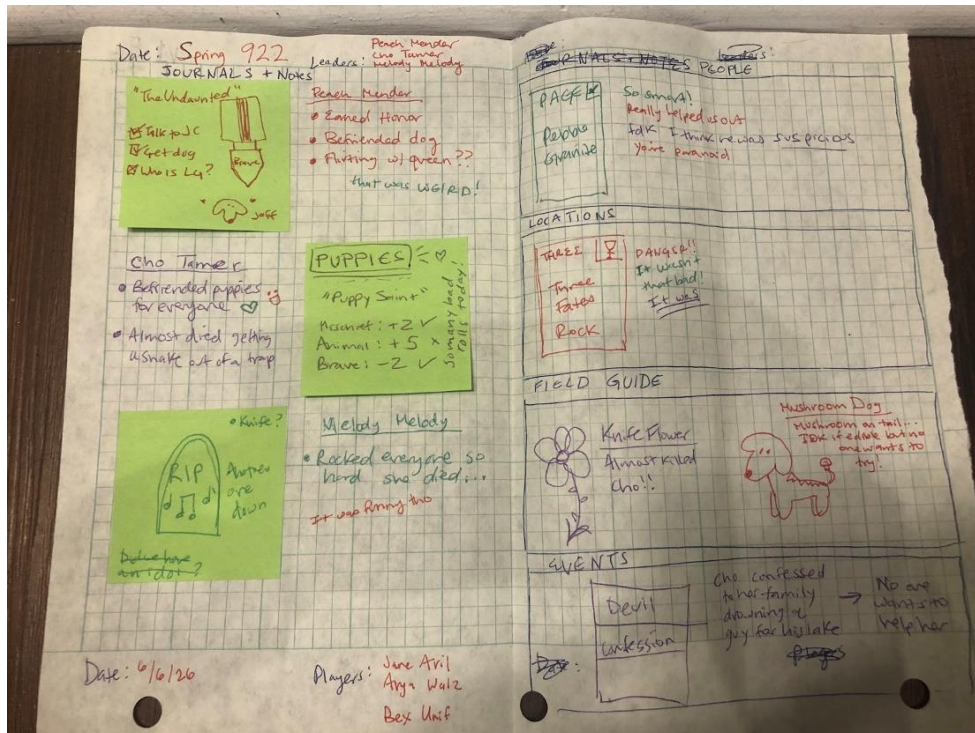 Date: Spring 922
JOURNALS + Notes
Leaders: Peach Mender
Cho Tamer
Melody Melody
"The Undaunted"
Talk to JC
Get dog
Who is LG?
Brave
Jeff
Peach Mender
• Earned Honor
• Befriended dog
• Flirting w/ queen??
that was WEIRD!
Cho Tamer
• Befriended puppies
for everyone
• Almost died getting
a snake out of a trap
PUPPIES
"Puppy Saint"
Mischief: +2 ✓
Animal: +5 x
Brave: -2 ✓
So many bad
rolls today!
• Knife?
RIP
Another
one
down
Do we have
an idol?
Melody Melody
• Rocked everyone so
hard she died...
It was funny tho
Date: 6/6/26
Players: Jane Avil
Arya Walz
Bex Unif
JOURNALS + NOTES PEOPLE
Leaders:
PAGE
Pebble
Granite
So smart!
Really helped us out
Idk I think he was suspicious
You're paranoid
LOCATIONS
THREE
Three
Fates
Rock
DANGER!!
It wasn't
that bad!
It was
FIELD GUIDE
Knife Flower
Almost killed
Cho!!
Mushroom Dog
Mushroom on tail...
IDK if edible but no
one wants to
try!
EVENTS
Devil
Confession
Cho confessed
to her family
drowning a
guy for his lake
→ No one
wants to
help her
Date:
Players